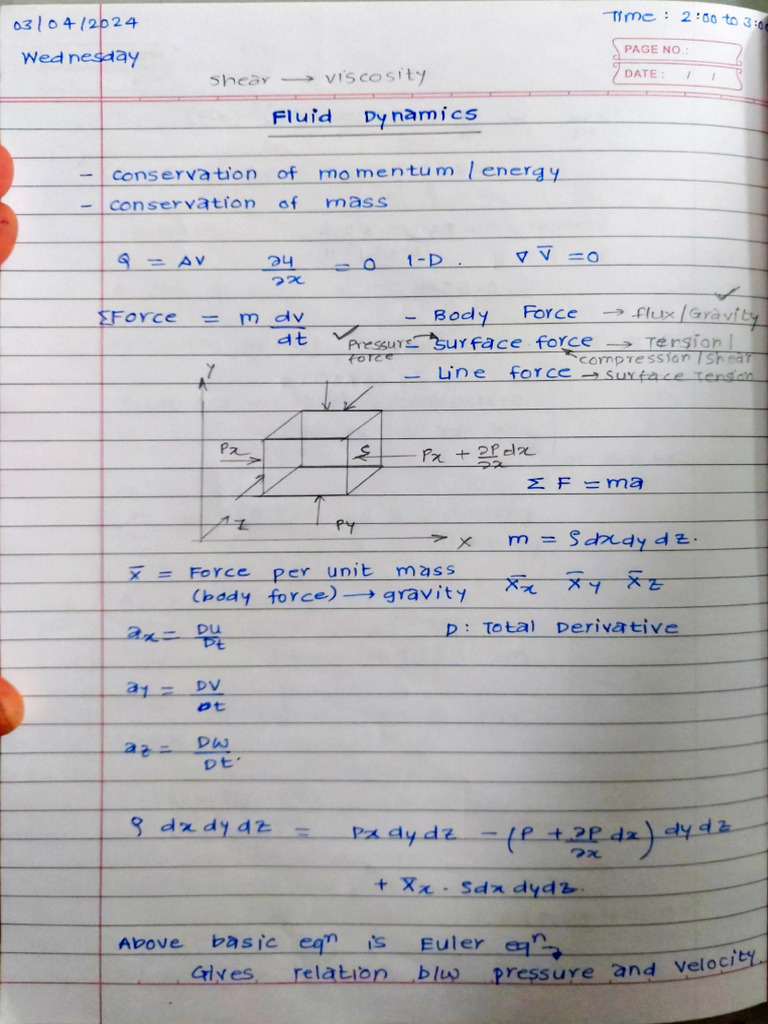 03/04/2024
Time : 2:00 to 3:00
Wednesday
PAGE NO.:
DATE: / /
shear → viscosity
Fluid Dynamics
- conservation of momentum / energy
- conservation of mass
Q = AV ∂u/∂x = 0 1-D . ∇ V̄ = 0
ΣForce = m dv/dt
- Body Force → flux/Gravity ✓
✓ Pressure force → - Surface force → Tension / compression / shear
- Line force → surface Tension
Y
Px
Px + ∂P/∂x dx
Σ F = ma
Z
Py
X
m = ρ dx dy dz.
x̄ = Force per unit mass
(body force) → gravity X̄x X̄y X̄z
ax = DU/Dt D : Total Derivative
ay = DV/Dt
az = DW/Dt.
ρ dx dy dz = Px dy dz - (P + ∂P/∂x dx) dy dz
+ X̄x . ρdx dydz.
Above basic eqn is Euler eqn →
Gives relation b/w pressure and velocity.